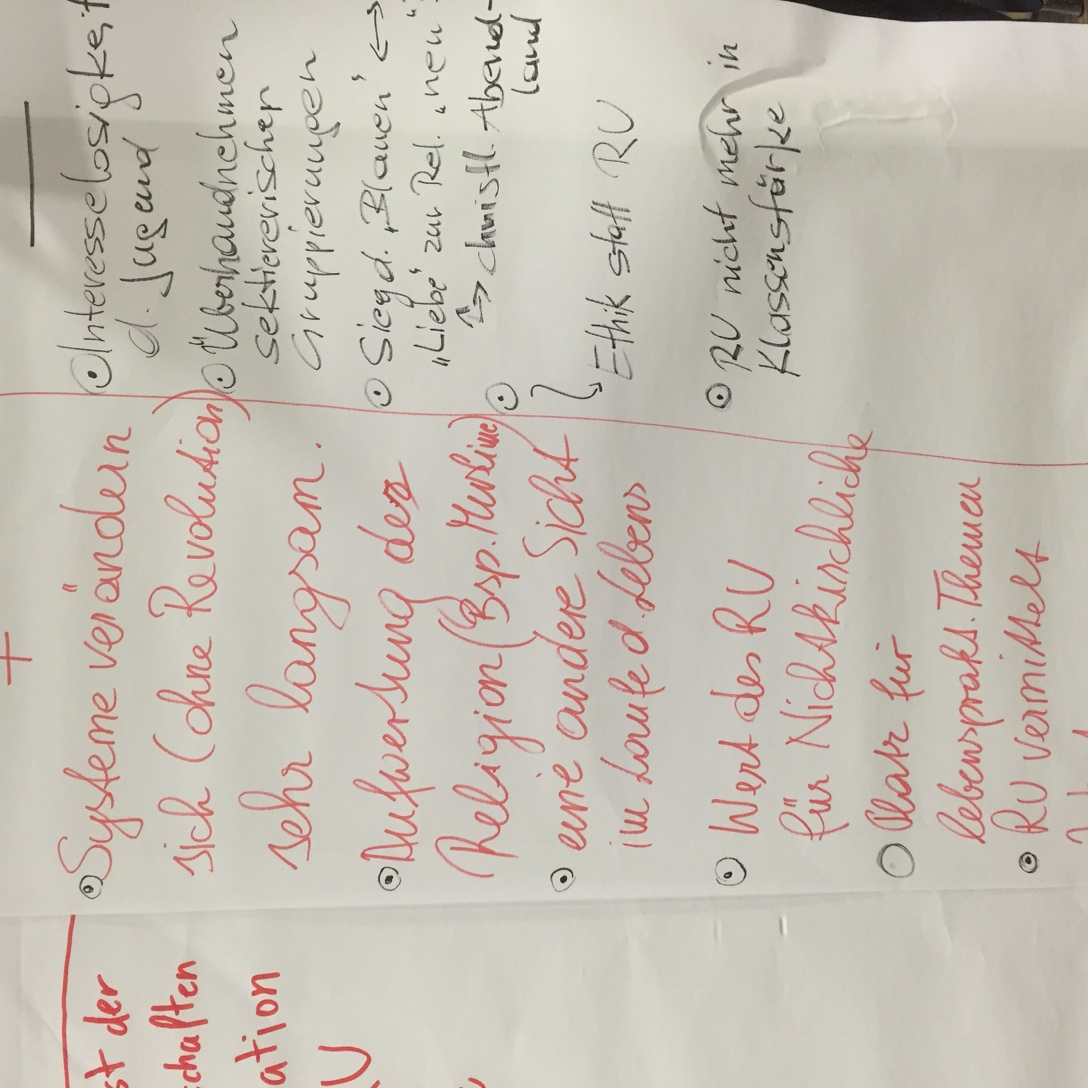 +
Systeme verändern
sich (ohne Revolution)
sehr langsam.
Aufwertung der
Religion (Bsp. Muslime)
eine andere Sicht
im Laufe d. Lebens
Wert des RU
für Nichtkirchliche
Platz für
lebensprakt. Themen
RU vermittelt
—
Interesselosigkeit
d. Jugend
Überhandnehmen
sektiererischer
Gruppierungen
Sieg d. „Blauen" ↔
„Liebe" zur Rel. „neu"
↳ christl. Abend-
land
Ethik statt RU
RU nicht mehr in
Klassenstärke
st der
schaften
ation
U